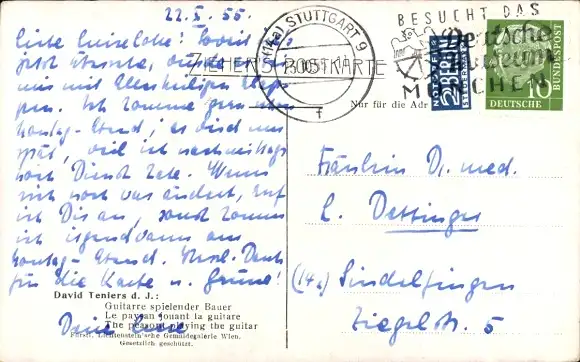 22.X.55.
Liebe Luiselotte! Soweit ich
jetzt
uns mit Allerheiligen
pen. Ich komme gern am
Montag-Abend; es wird nur
spät, weil ich nachmittags
noch Dienst habe. Wenn
sich noch was ändert, ruf
ich Dis an, sonst komm
ich irgendwann am
Montag-Abend. Herzl. Dank
für die Karte u. Grüsse!
Deine
David Teniers d. J.:
Guitarre spielender Bauer
Le paysan jouant la guitare
The peasant playing the guitar
Fürstl. Liechtenstein'sche Gemäldegalerie Wien.
Gesetzlich geschützt.
(14a) STUTTGART 9
f
BESUCHT DAS
Deutsche
Museum
MÜNCHEN
POSTKARTE
Nur für die Adr
NOTOPFER
2 BERLIN
STEUERMARKE
10
DEUTSCHE
BUNDESPOST
Fräulein Dr. med.
L. Dettinger
(14a) Sindelfingen
Ziegelstr. 5